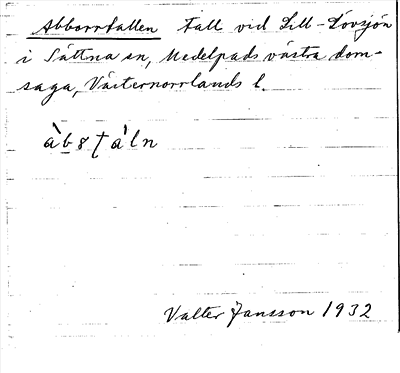 Abborrfallen Fall vid Lill-Lövsjön
i Sättna sn, Medelpads västra dom-
saga, Västernorrlands l.
Valter Jansson 1932